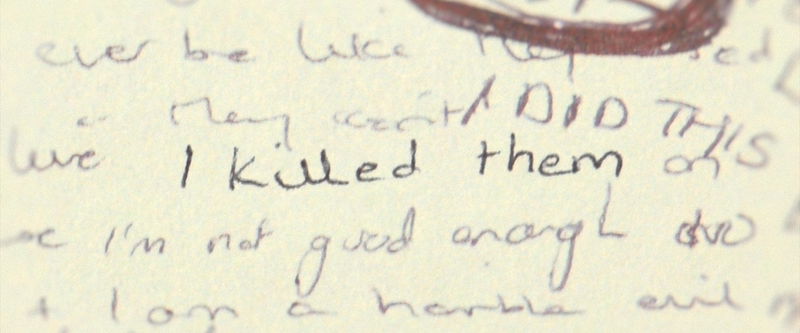 ever be like they used
a They can't I DID THIS
live I killed them on
I'm not good enough
I am a horrible evil